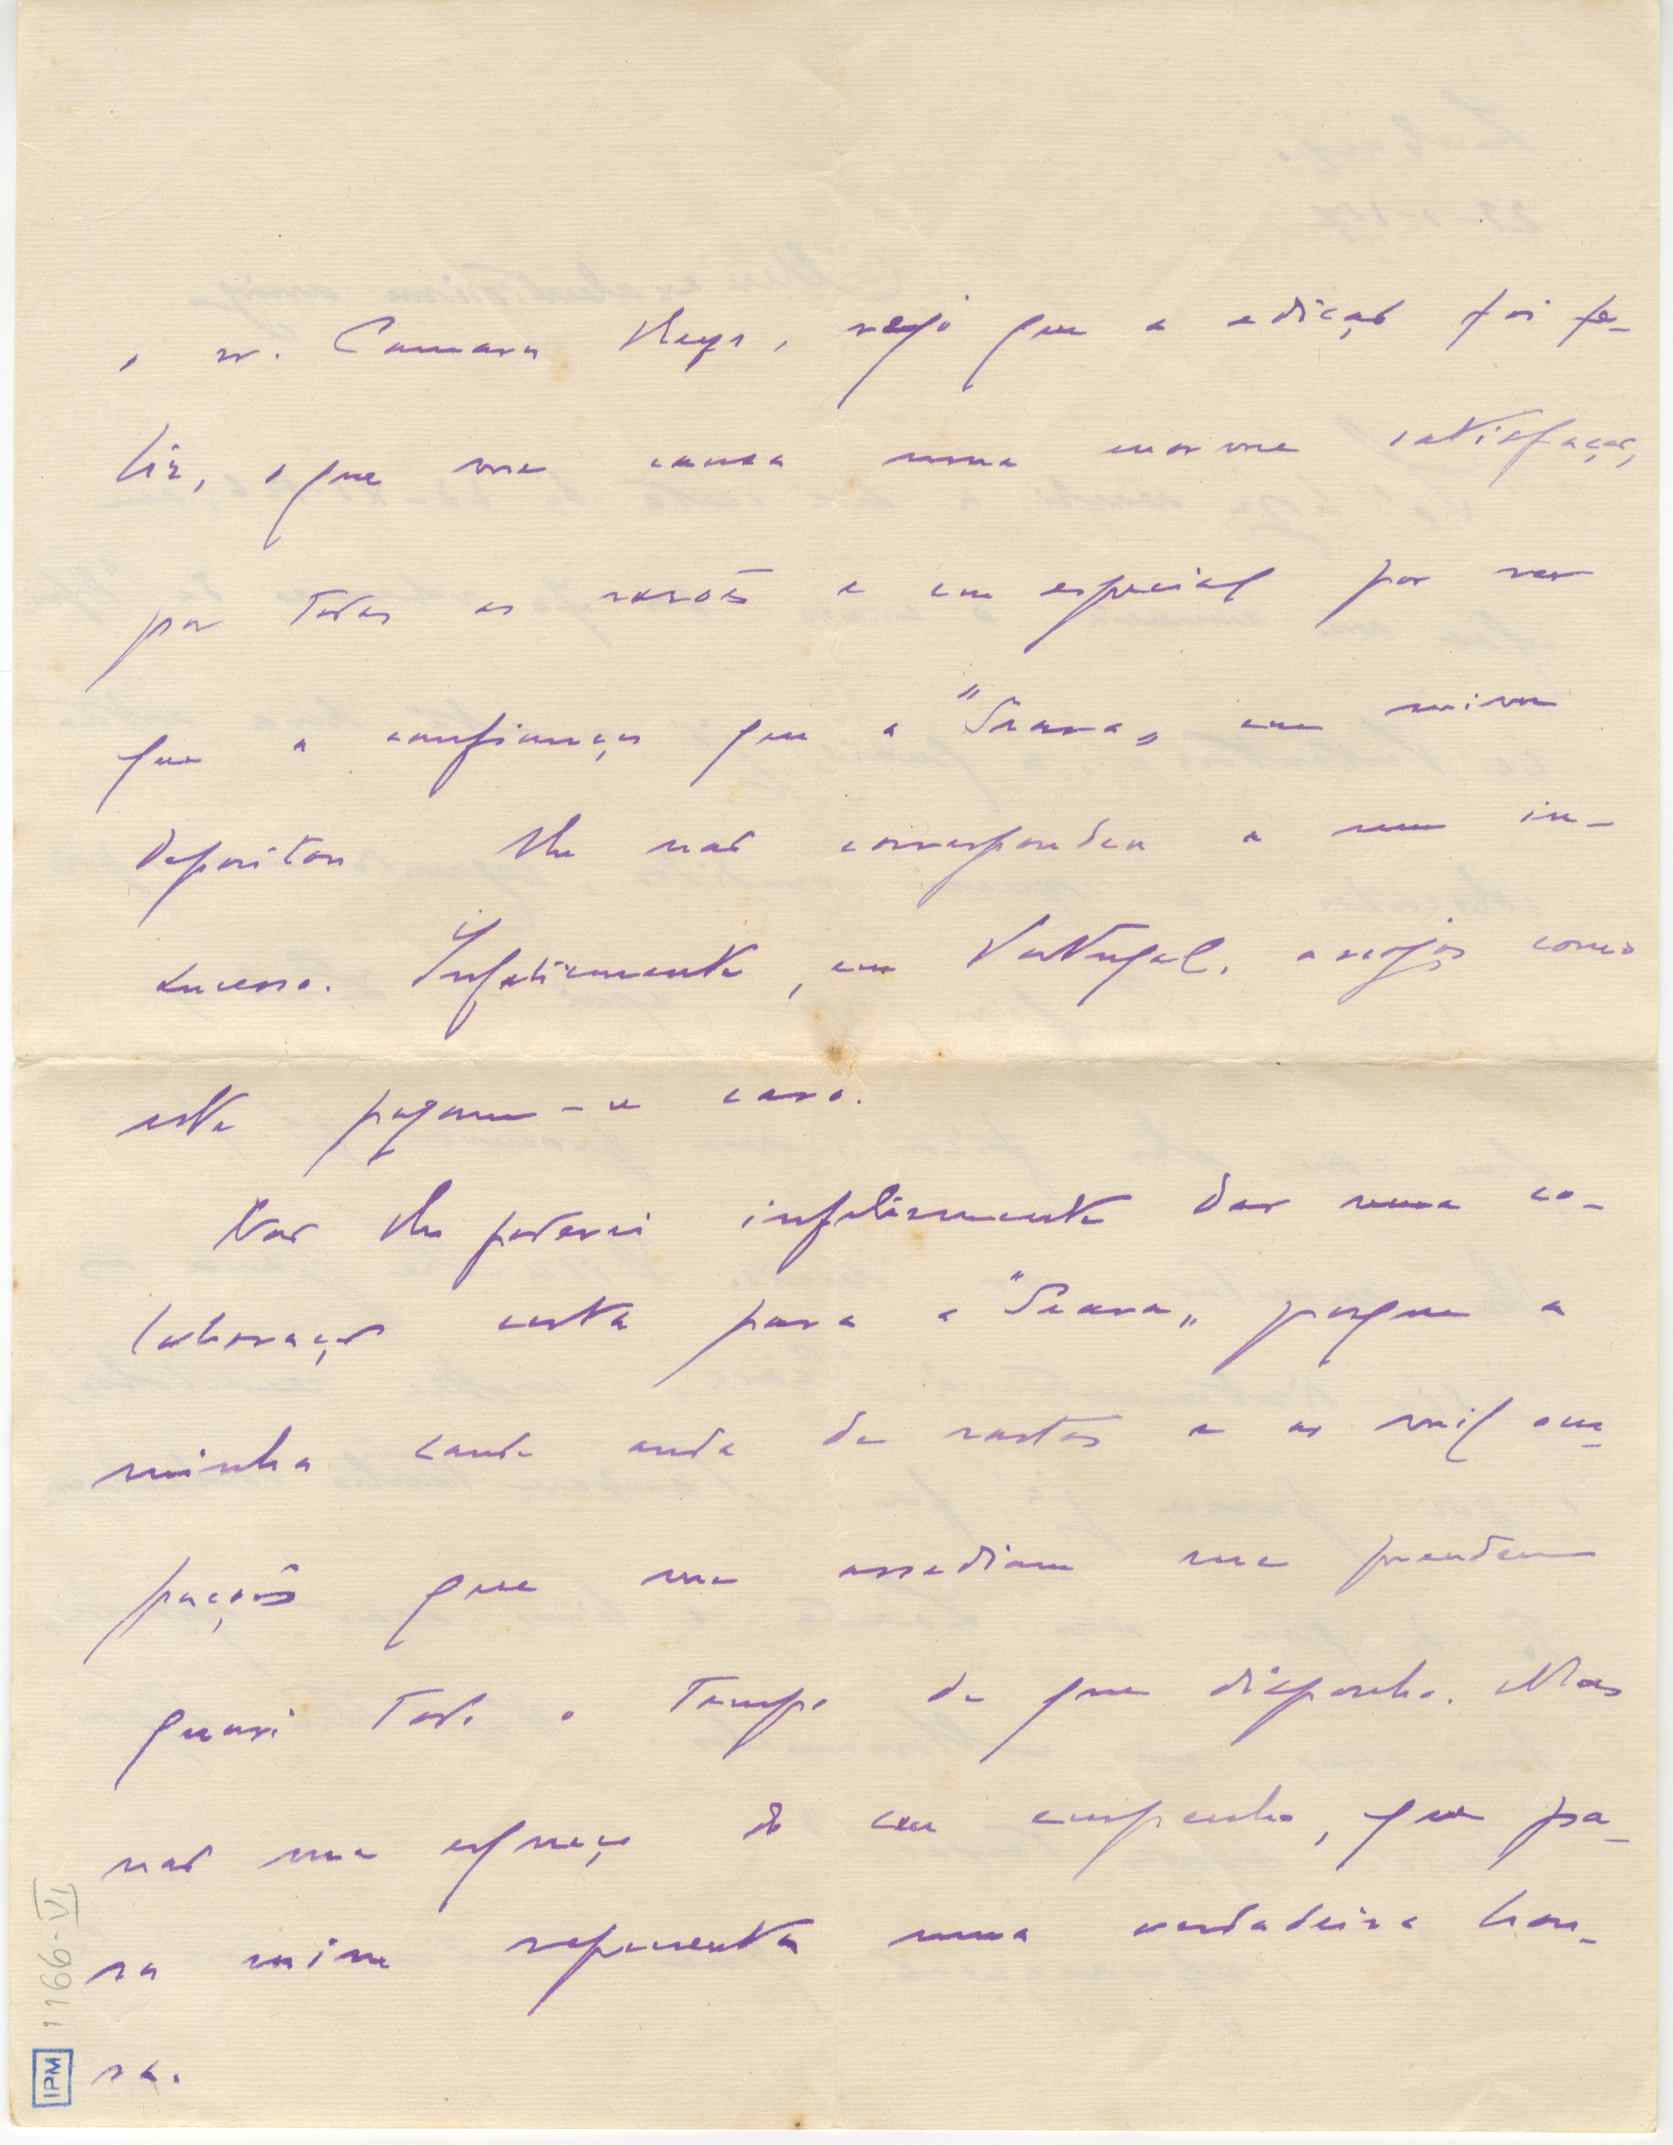 o sr. Camara Reys, vejo que a edição foi fe-
liz, o que me causa uma enorme satisfação,
por todas as razões e em especial por ver
que a confiança que a "Seara" em mim
depositou lhe não correspondeu a um in-
sucesso. Infelizmente, em Portugal, arrojos como
este pagam-se caro.
Não lhe poderei infelizmente dar uma co-
laboração certa para a "Seara" porque a
minha saude anda de rastos e as mil ocu-
pações que me assediam me prendem
quasi todo o tempo de que disponho. Mas
não me esqueço do seu empenho, que pa-
ra mim representa uma verdadeira hon-
ra.
1166-VI
IPM